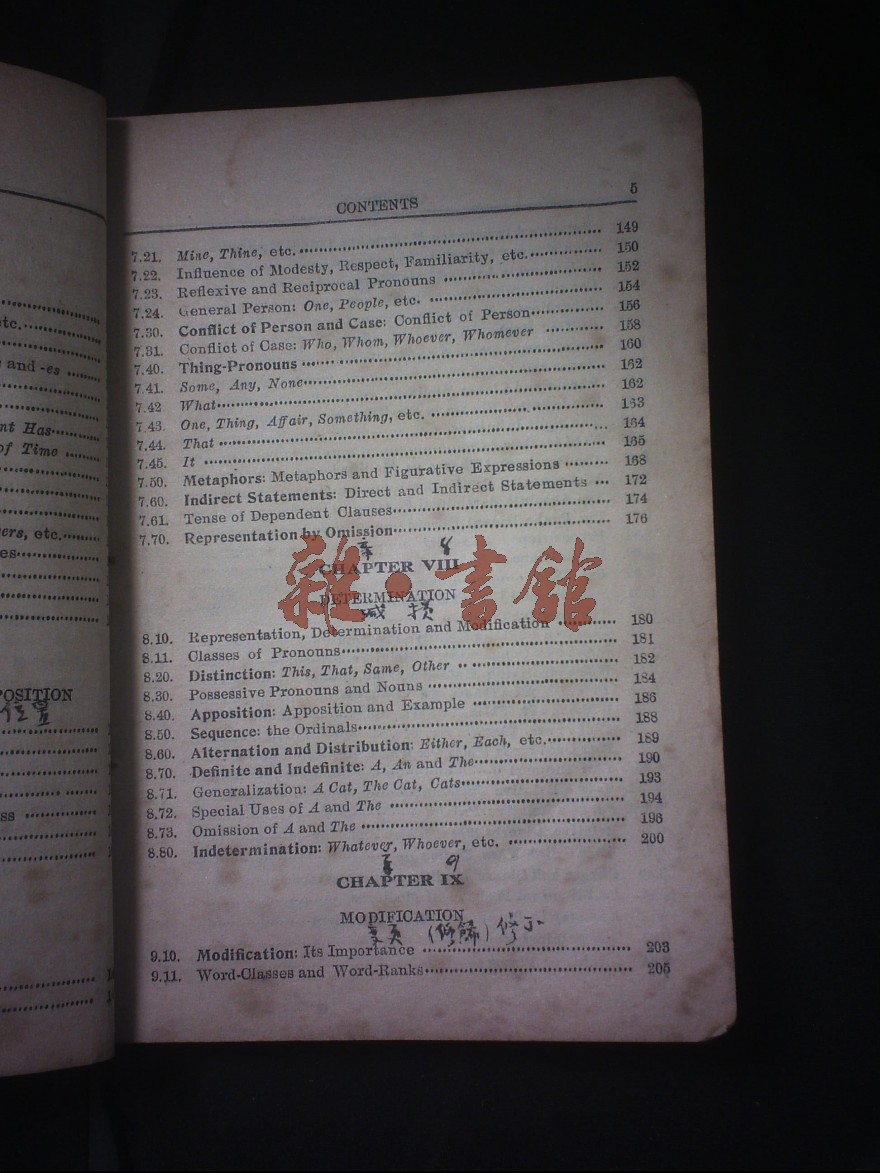 tc.
and -es
nt Has
of Time
ers, etc.
es
POSITION
位置
ss
CONTENTS 5
7.21. Mine, Thine, etc. 149
7.22. Influence of Modesty, Respect, Familiarity, etc. 150
7.23. Reflexive and Reciprocal Pronouns 152
7.24. General Person: One, People, etc. 154
7.30. Conflict of Person and Case: Conflict of Person 156
7.31. Conflict of Case: Who, Whom, Whoever, Whomever 158
7.40. Thing-Pronouns 160
7.41. Some, Any, None 162
7.42 What 162
7.43. One, Thing, Affair, Something, etc. 163
7.44. That 164
7.45. It 165
7.50. Metaphors: Metaphors and Figurative Expressions 168
7.60. Indirect Statements: Direct and Indirect Statements 172
7.61. Tense of Dependent Clauses 174
7.70. Representation by Omission 176
章 8
CHAPTER VIII
DETERMINATION
雜·書館
8.10. Representation, Determination and Modification 180
8.11. Classes of Pronouns 181
8.20. Distinction: This, That, Same, Other 182
8.30. Possessive Pronouns and Nouns 184
8.40. Apposition: Apposition and Example 186
8.50. Sequence: the Ordinals 188
8.60. Alternation and Distribution: Either, Each, etc. 189
8.70. Definite and Indefinite: A, An and The 190
8.71. Generalization: A Cat, The Cat, Cats 193
8.72. Special Uses of A and The 194
8.73. Omission of A and The 196
8.80. Indetermination: Whatever, Whoever, etc. 200
章 9
CHAPTER IX
MODIFICATION
9.10. Modification: Its Importance 203
9.11. Word-Classes and Word-Ranks 205